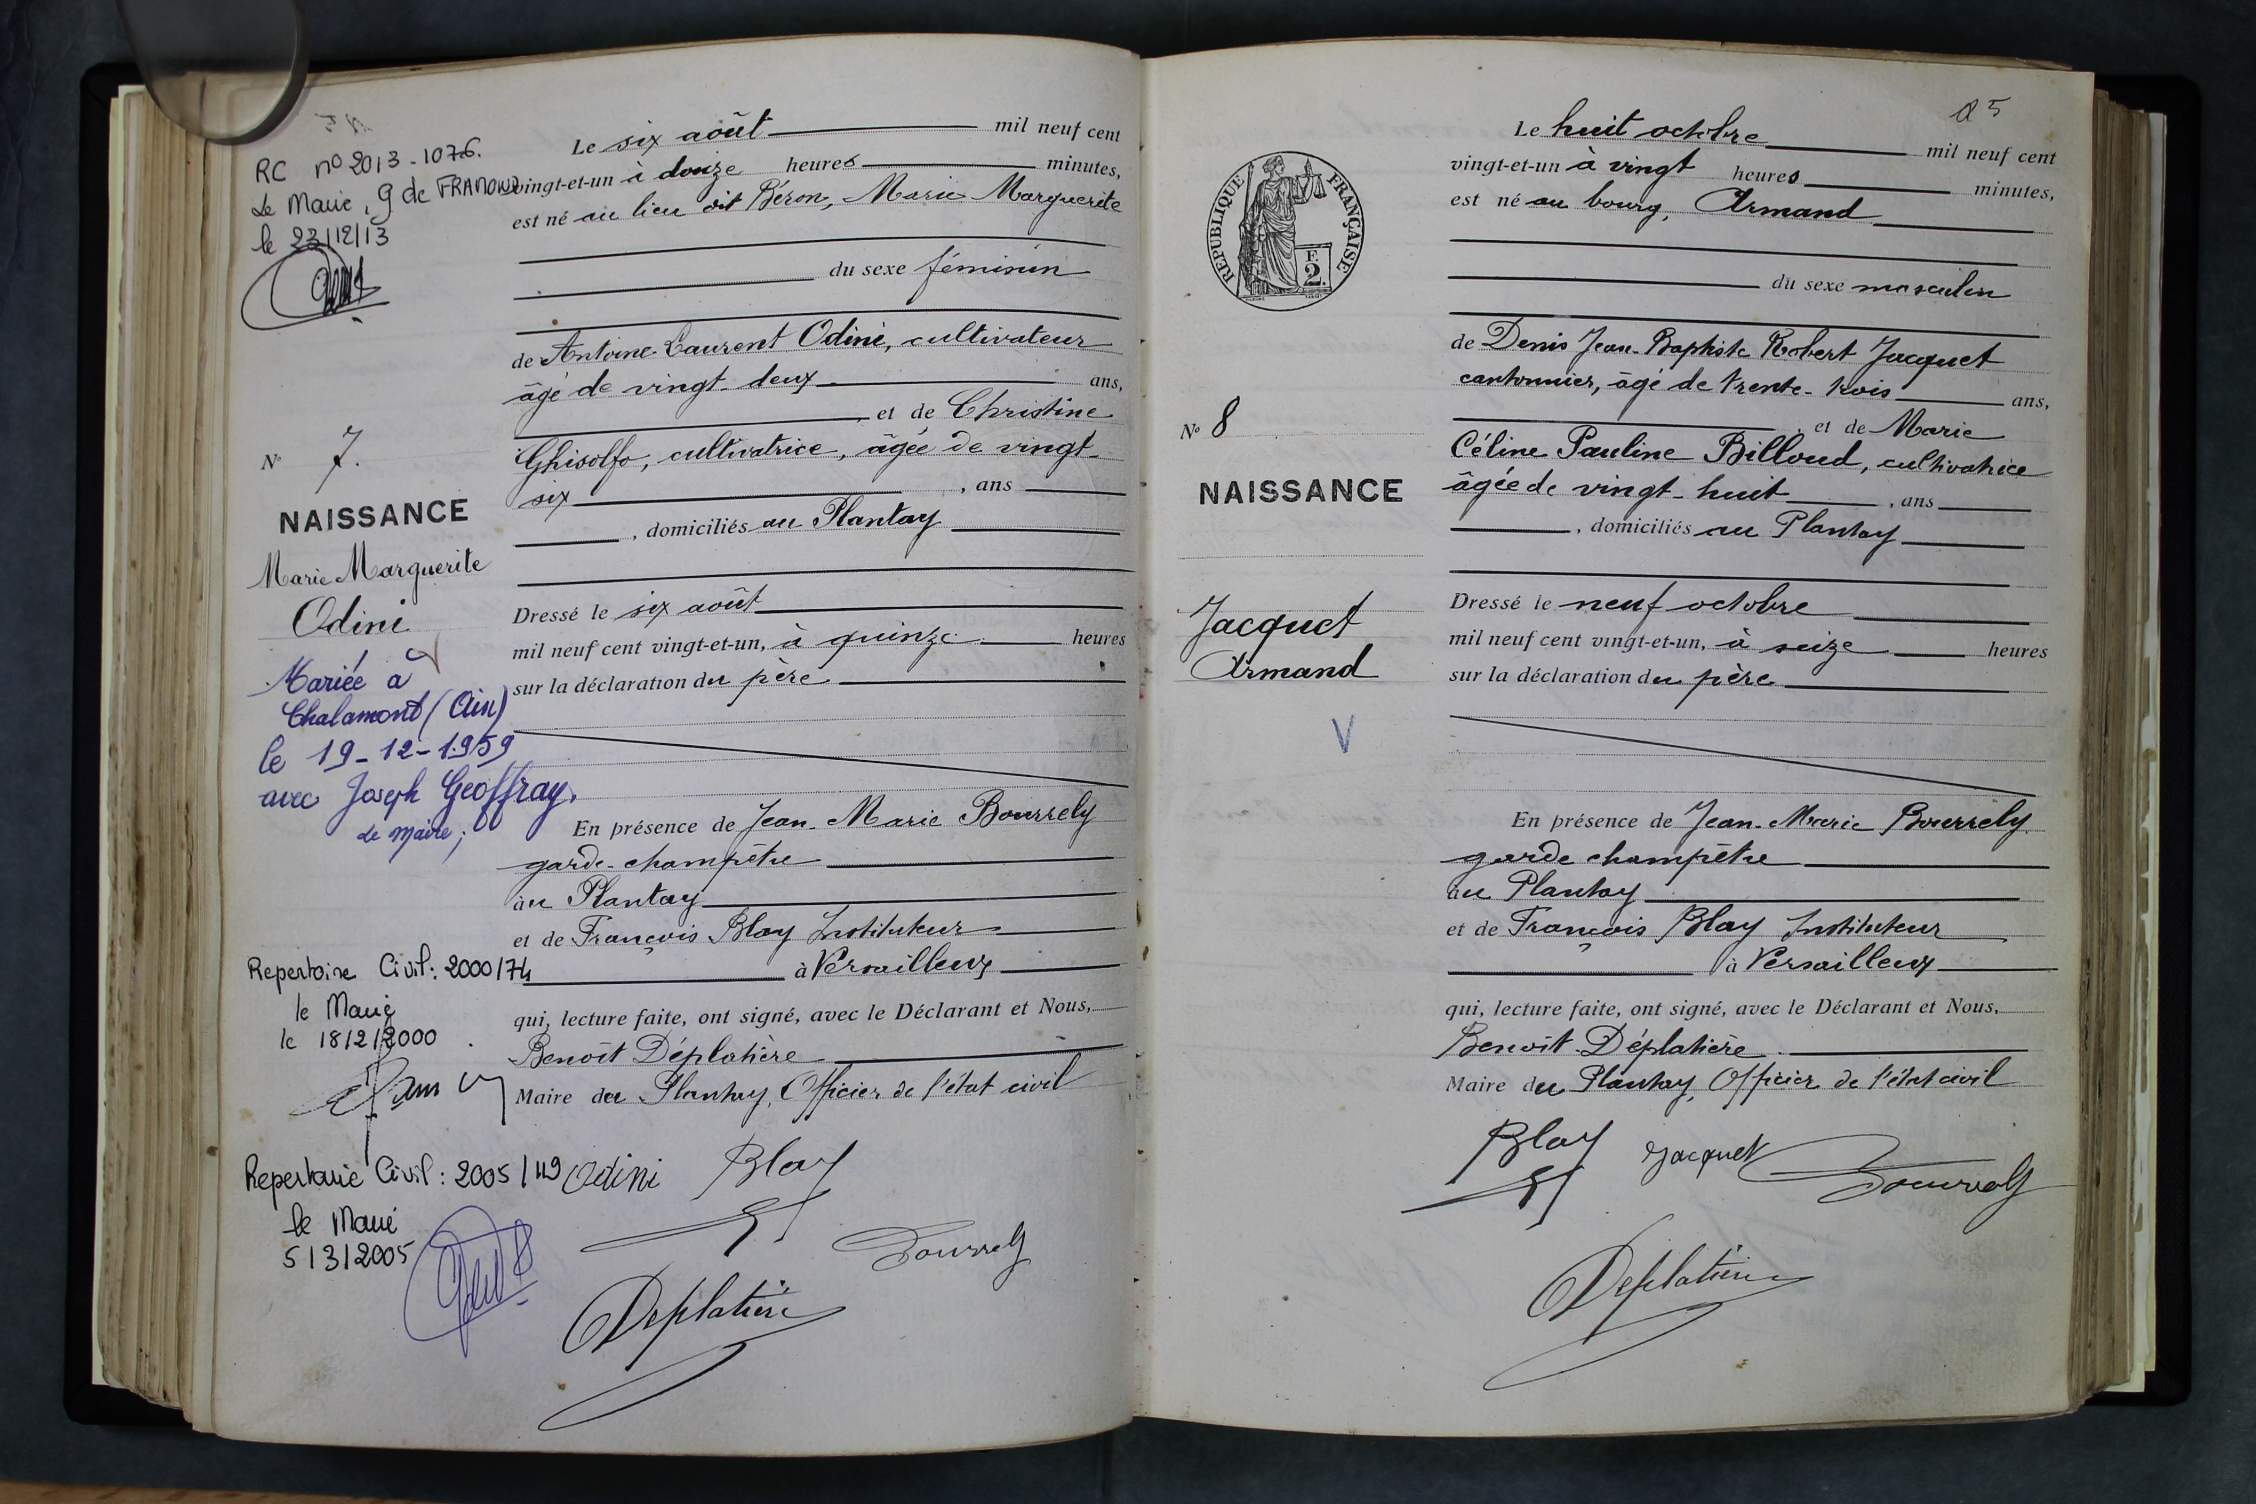 RC nº 2013-1076.
Le Maire, G de FRAMOND
le 23/12/13
Nº 7.
NAISSANCE
Marie Marguerite
Odini
Mariée à
Chalamont (Ain)
le 19-12-1959
avec Joseph Geoffray.
Le Maire;
Repertoire Civil: 2000/74
le Maire
le 18/2/2000
Repertoire Civil: 2005/119
le Maire
5/3/2005
Le six août mil neuf cent
vingt-et-un à douze heures minutes,
est né au lieu dit Béron, Marie Marguerite
du sexe féminin
de Antoine-Laurent Odini, cultivateur
âgé de vingt-deux ans,
et de Christine
Ghisolfo, cultivatrice, âgée de vingt-
six , ans
, domiciliés au Plantay
Dressé le six août
mil neuf cent vingt-et-un, à quinze heures
sur la déclaration du père
En présence de Jean-Marie Bourrely
garde-champêtre
au Plantay
et de François Blay Instituteur
à Versailleux
qui, lecture faite, ont signé, avec le Déclarant et Nous,
Benoît Déplatière
Maire du Plantay, Officier de l'état civil
Odini Blay
Bourrely
Déplatière
25
RÉPUBLIQUE FRANÇAISE
E
2.
Nº 8
NAISSANCE
Jacquet
Armand
V
Le huit octobre mil neuf cent
vingt-et-un à vingt heures minutes,
est né au bourg, Armand
du sexe masculin
de Denis Jean-Baptiste Robert Jacquet
cantonnier, âgé de trente-trois ans,
et de Marie
Céline Pauline Billoud, cultivatrice
âgée de vingt-huit , ans
, domiciliés au Plantay
Dressé le neuf octobre
mil neuf cent vingt-et-un, à seize heures
sur la déclaration du père
En présence de Jean-Marie Bourrely
garde champêtre
au Plantay
et de François Blay Instituteur
à Versailleux
qui, lecture faite, ont signé, avec le Déclarant et Nous,
Benoît Déplatière
Maire du Plantay, Officier de l'état civil
Blay Jacquet Bourrely
Déplatière